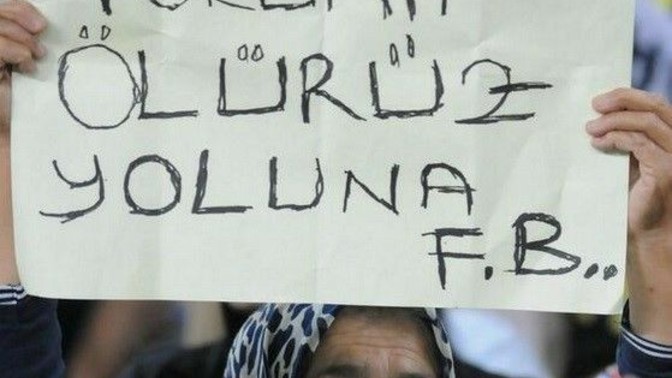 ÖLÜRÜZ
YOLUNA
F.B..